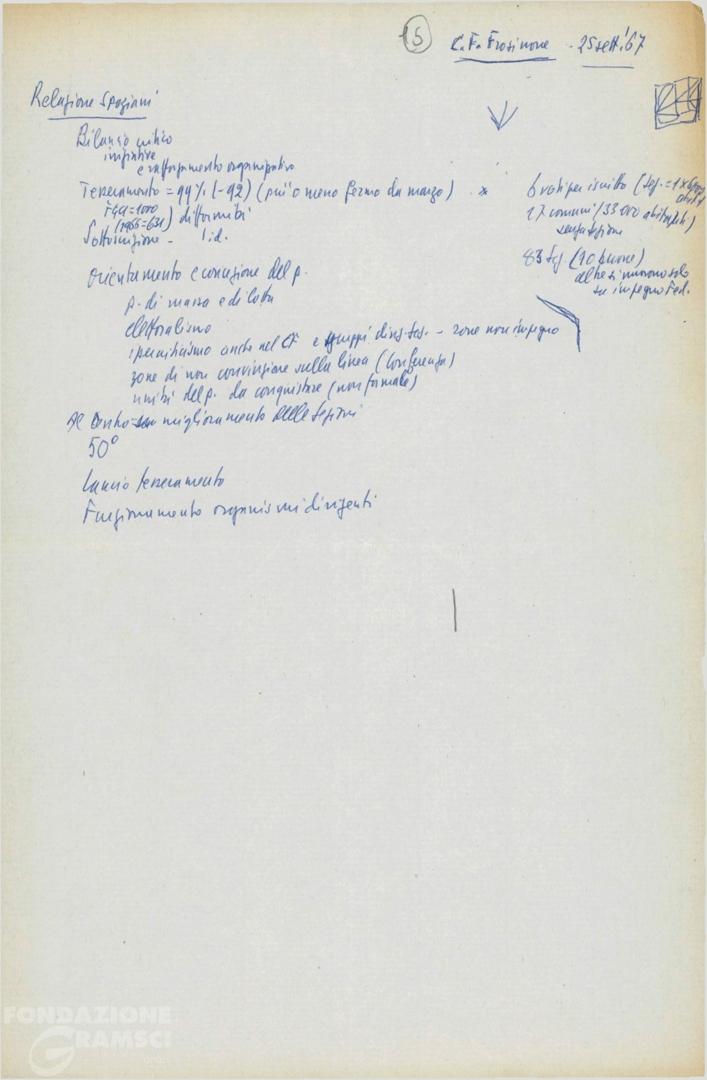 15 C.F. Frosinone - 25 sett. '67
Relazione Spaziani
Bilancio critico
iniziative
e rafforzamento organizzativo
Tesseramento = 99% (-92) (più o meno fermo da marzo) *
FGCI = 1000
(1966 = 631) difformità
Sottoscrizione - id.
6 voti per iscritto (Sez. = 1 x
17 comuni / 33.000 abitanti)
senza sezione
83 Sez. (40 buone)
altre si muovono solo
su impegno Fed.
Orientamento e concezione del p.
p. di massa e di lotta
elettoralismo
ipercriticismo anche nel CF e gruppi dirig. sez. - zone non impegno
zone di non convinzione sulla linea (Conferenza)
unità del p. da conquistare (non formale)
Al Centro = miglioramento delle Sezioni
50°
Lancio tesseramento
Funzionamento organismi dirigenti
FONDAZIONE
GRAMSCI